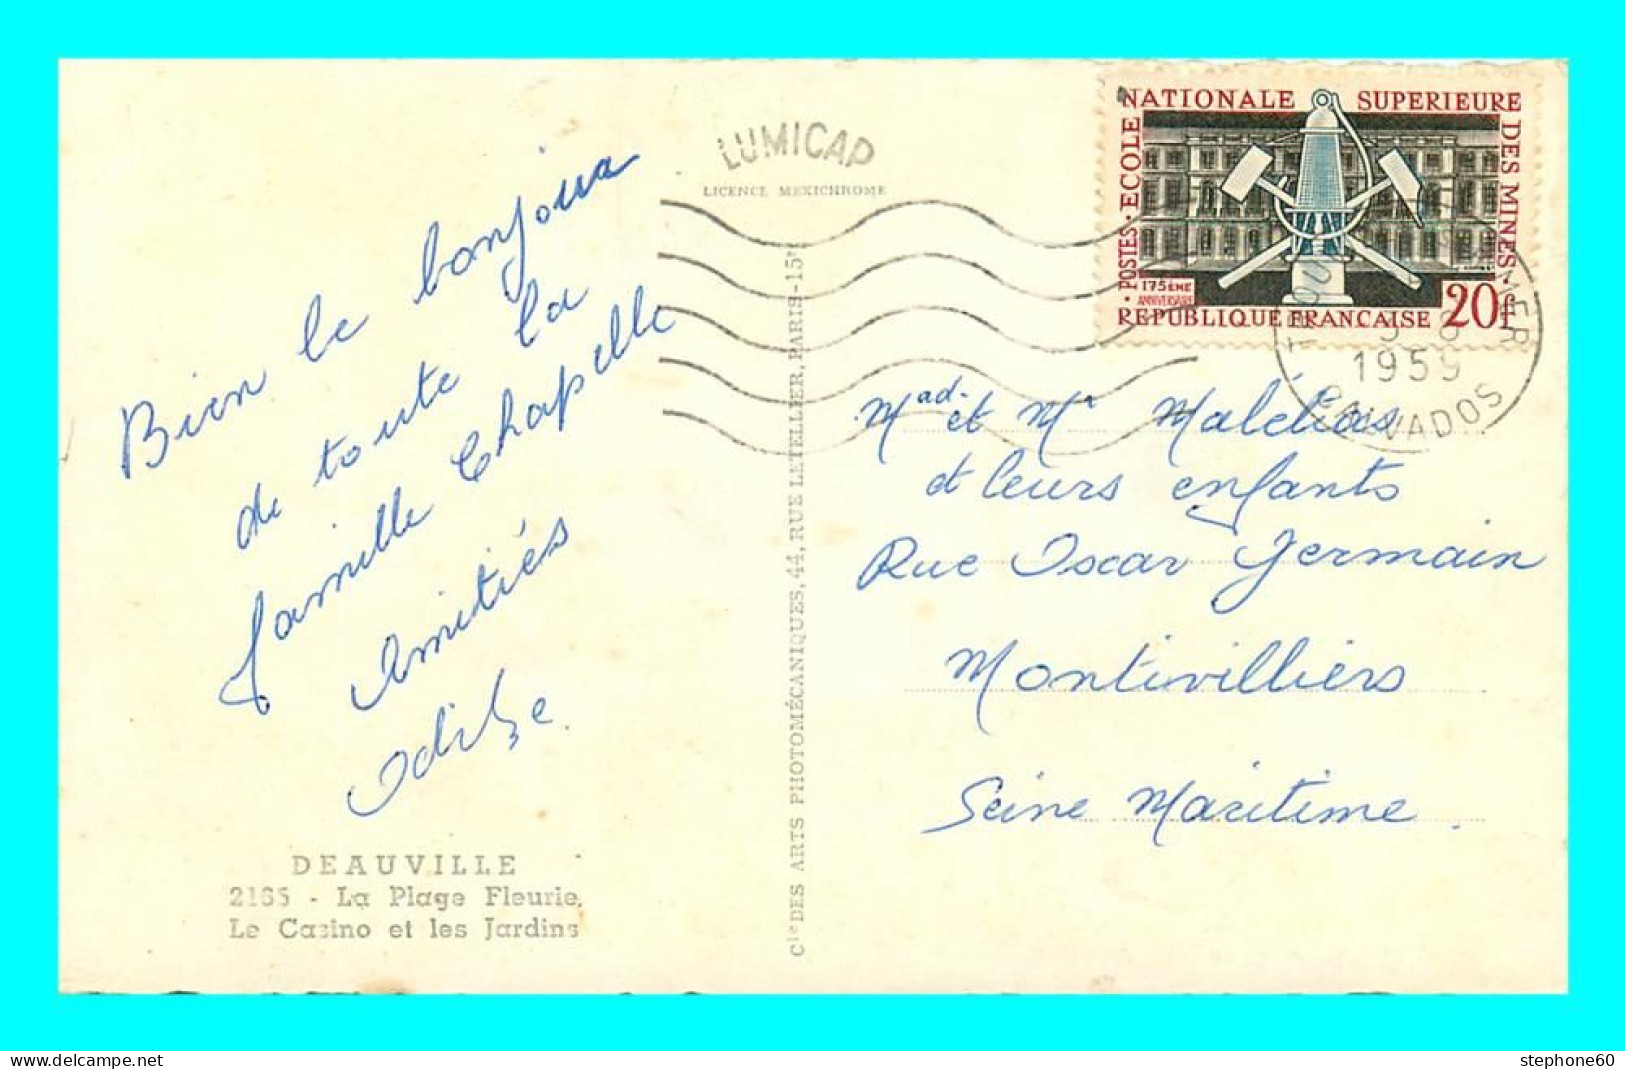 LUMICAP
LICENCE MEXICHROME
Bien le bonjour
de toute la
famille Chapelle
Amitiés
DEAUVILLE
2165 - La Plage Fleurie.
Le Casino et les Jardins
Cie DES ARTS PHOTOMÉCANIQUES, 44, RUE LETELLIER, PARIS-15e
POSTES · ECOLE NATIONALE SUPERIEURE DES MINES
175ÈME
ANNIVERSAIRE
REPUBLIQUE FRANCAISE 20f
MER
1959
CALVADOS
Mad. et Mr Malélias
et leurs enfants
Rue Oscar Germain
Montivilliers
Seine Maritime.
stephone60